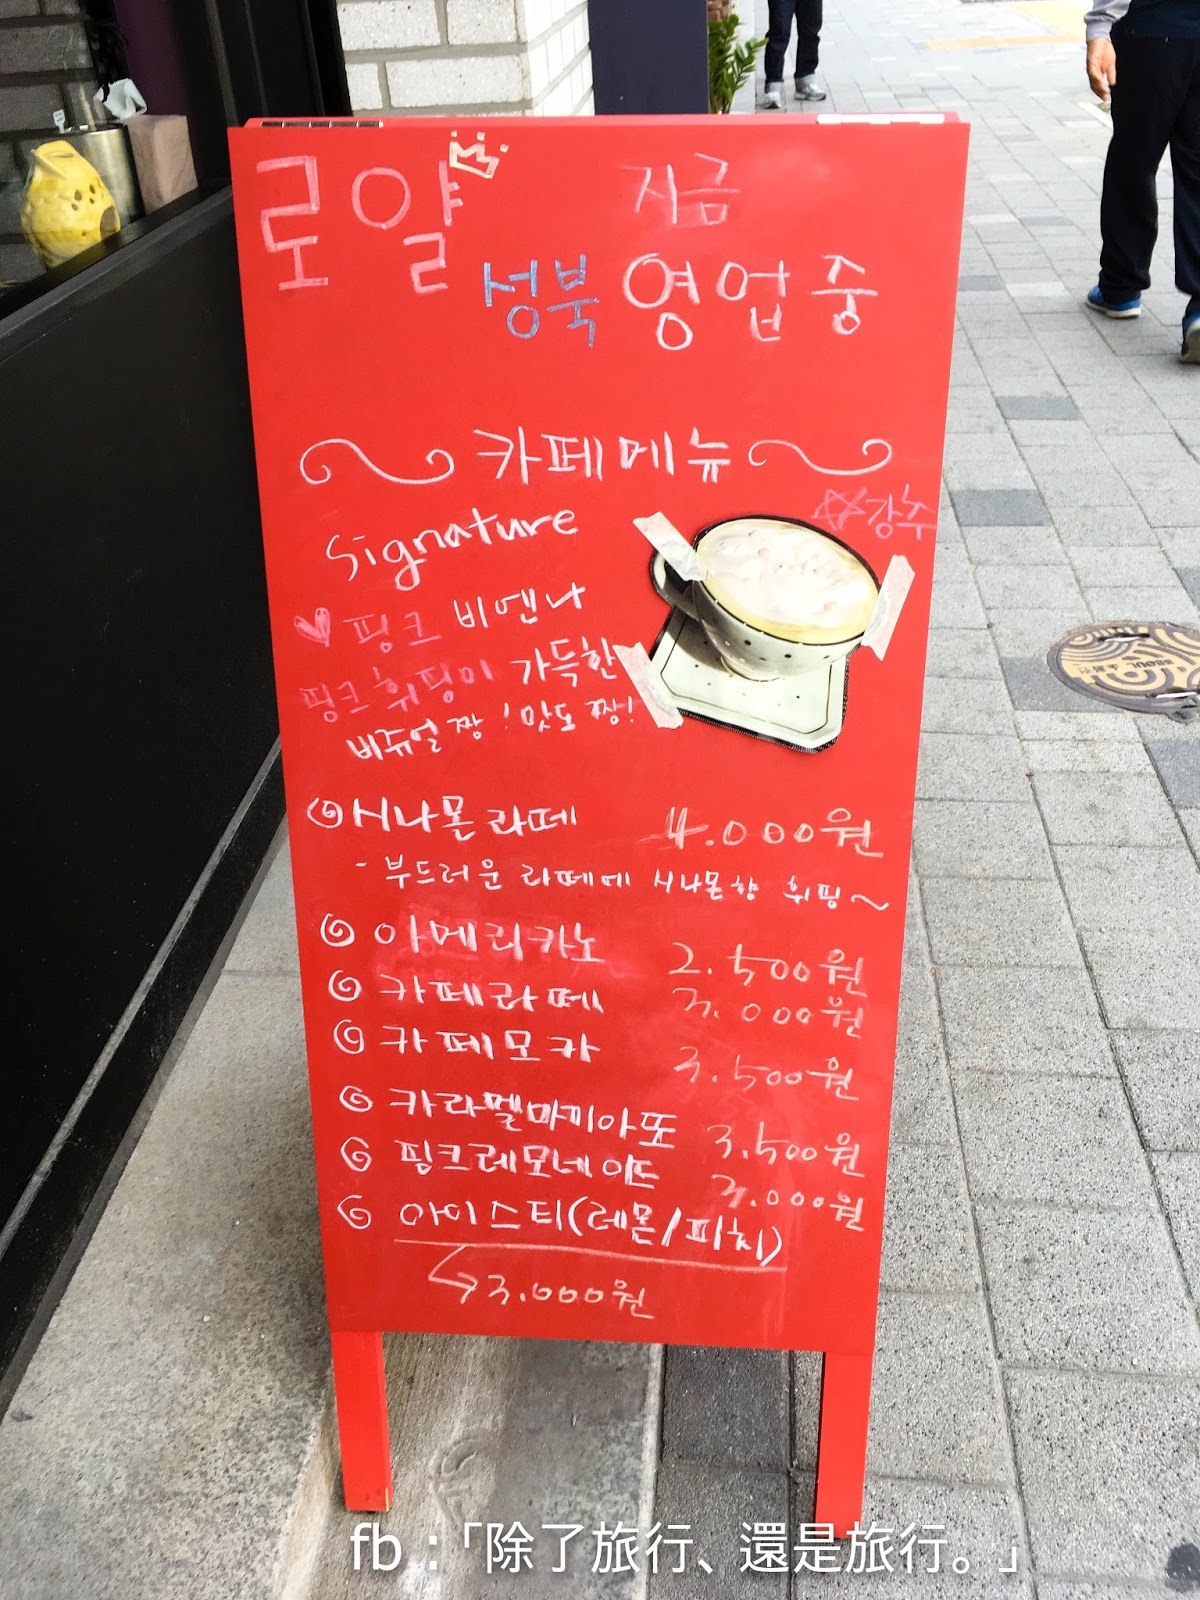 로얄 지금
성북 영업중
카페메뉴
강추
Signature
핑크 비엔나
핑크휘핑이 가득한
비쥬얼 짱! 맛도 짱!
시나몬라떼 4.000원
- 부드러운 라떼에 시나몬향 휘핑~
아메리카노 2.500원
카페라떼 3.000원
카페모카 3.500원
카라멜마끼아또 3.500원
핑크레모네이드 3.000원
아이스티(레몬/피치)
3.000원
fb:「除了旅行、還是旅行。」